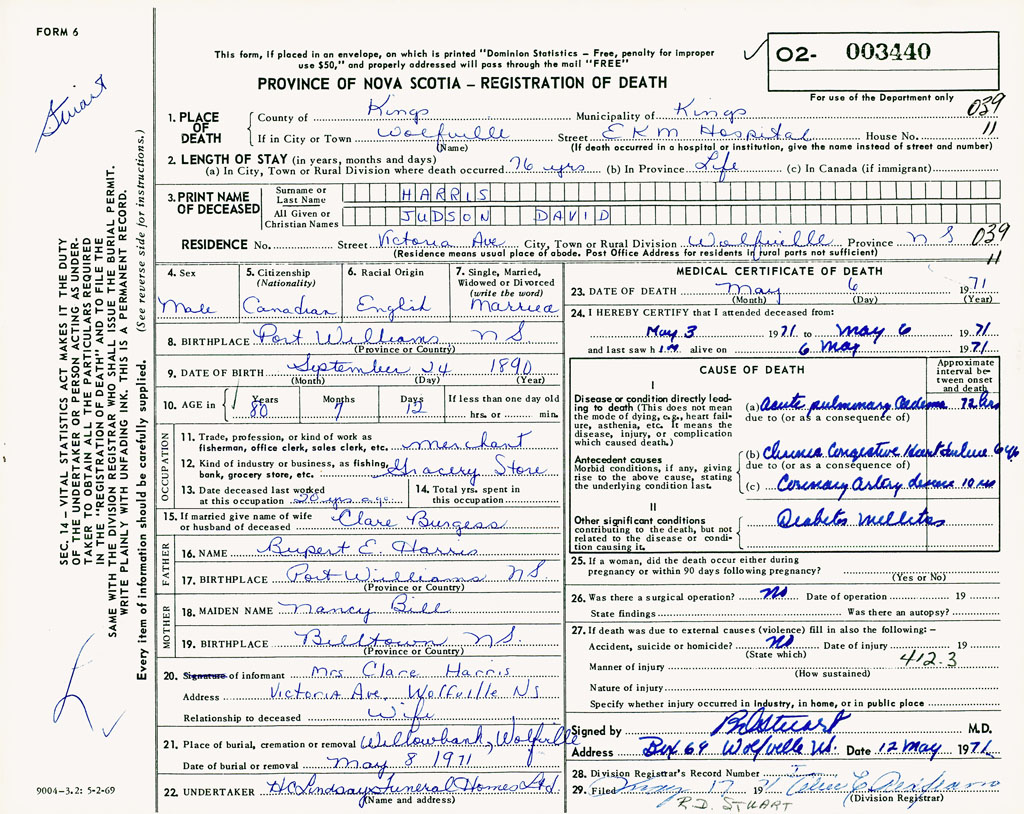 FORM 6
Stuart
This form, if placed in an envelope, on which is printed "Dominion Statistics – Free, penalty for improper
use $50," and properly addressed will pass through the mail "FREE"
O2- 003440
For use of the Department only
PROVINCE OF NOVA SCOTIA – REGISTRATION OF DEATH
039
11
1. PLACE OF DEATH
County of Kings Municipality of Kings
If in City or Town Wolfville Street EKM Hospital House No.
(Name) (If death occurred in a hospital or institution, give the name instead of street and number)
2. LENGTH OF STAY (in years, months and days)
(a) In City, Town or Rural Division where death occurred 76 yrs (b) In Province Life (c) In Canada (if immigrant)
3. PRINT NAME OF DECEASED
Surname or Last Name HARRIS
All Given or Christian Names JUDSON DAVID
RESIDENCE No. Street Victoria Ave City, Town or Rural Division Wolfville Province NS 039
11
(Residence means usual place of abode. Post Office Address for residents in rural parts not sufficient)
4. Sex
Male
5. Citizenship
(Nationality)
Canadian
6. Racial Origin
English
7. Single, Married,
Widowed or Divorced
(write the word)
Married
8. BIRTHPLACE Port Williams NS
(Province or Country)
9. DATE OF BIRTH September 24 1890
(Month) (Day) (Year)
10. AGE in Years Months Days If less than one day old
80 7 12 hrs. or min.
OCCUPATION
11. Trade, profession, or kind of work as
fisherman, office clerk, sales clerk, etc. merchant
12. Kind of industry or business, as fishing,
bank, grocery store, etc. Grocery Store
13. Date deceased last worked
at this occupation 20 yrs ago
14. Total yrs. spent in
this occupation
15. If married give name of wife
or husband of deceased Clare Burgess
FATHER
16. NAME Rupert E. Harris
17. BIRTHPLACE Port Williams NS
(Province or Country)
MOTHER
18. MAIDEN NAME Nancy Bill
19. BIRTHPLACE Billtown NS.
(Province or Country)
20. Signature of informant Mrs Clare Harris
Address Victoria Ave. Wolfville NS
Relationship to deceased Wife
21. Place of burial, cremation or removal Willowbank, Wolfville
Date of burial or removal May 8 1971
22. UNDERTAKER HC Lindsay Funeral Homes Ltd.
(Name and address)
MEDICAL CERTIFICATE OF DEATH
23. DATE OF DEATH May 6 1971
(Month) (Day) (Year)
24. I HEREBY CERTIFY that I attended deceased from:
May 3 1971 to May 6 1971
and last saw h im alive on 6 May 1971
CAUSE OF DEATH
Approximate
interval be-
tween onset
and death
I
Disease or condition directly lead-
ing to death (This does not mean
the mode of dying, e.g., heart fail-
ure, asthenia, etc. It means the
disease, injury, or complication
which caused death.)
(a) Acute pulmonary Oedema 72 hrs
due to (or as a consequence of)
Antecedent causes
Morbid conditions, if any, giving
rise to the above cause, stating
the underlying condition last.
(b) Chronic Congestive Heart failure
due to (or as a consequence of)
(c) Coronary Artery disease 10 yrs
II
Other significant conditions
contributing to the death, but not
related to the disease or condi-
tion causing it.
Diabetes Mellitus
25. If a woman, did the death occur either during
pregnancy or within 90 days following pregnancy?
(Yes or No)
26. Was there a surgical operation? No Date of operation 19
State findings Was there an autopsy?
27. If death was due to external causes (violence) fill in also the following: –
Accident, suicide or homicide? No Date of injury 19
(State which) 412.3
Manner of injury
(How sustained)
Nature of injury
Specify whether injury occurred in industry, in home, or in public place
Signed by RD Stuart M.D.
Address Box 69 Wolfville NS. Date 12 May 1971
28. Division Registrar's Record Number
29. Filed May 17 1971
R.D. STUART (Division Registrar)
SEC. 14 – VITAL STATISTICS ACT MAKES IT THE DUTY
OF THE UNDERTAKER OR PERSON ACTING AS UNDER-
TAKER TO OBTAIN ALL THE PARTICULARS REQUIRED
IN THE "REGISTRATION OF DEATH" AND TO FILE THE
SAME WITH THE DIVISION REGISTRAR WHO SHALL ISSUE THE BURIAL PERMIT.
WRITE PLAINLY WITH UNFADING INK. THIS IS A PERMANENT RECORD.
Every item of information should be carefully supplied. (See reverse side for instructions.)
9004-3.2: 5-2-69